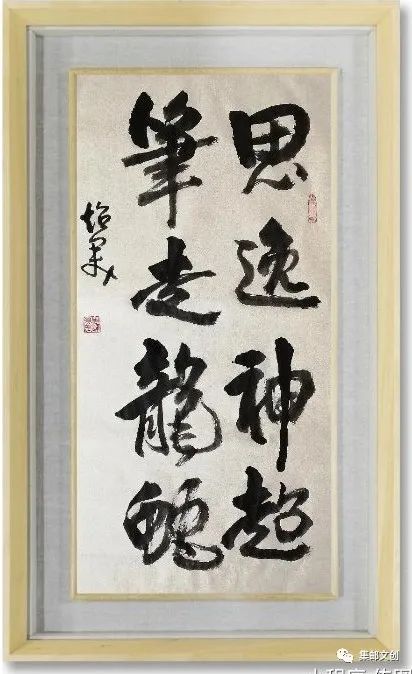 思逸神超
筆走龍蛇
集邮文创